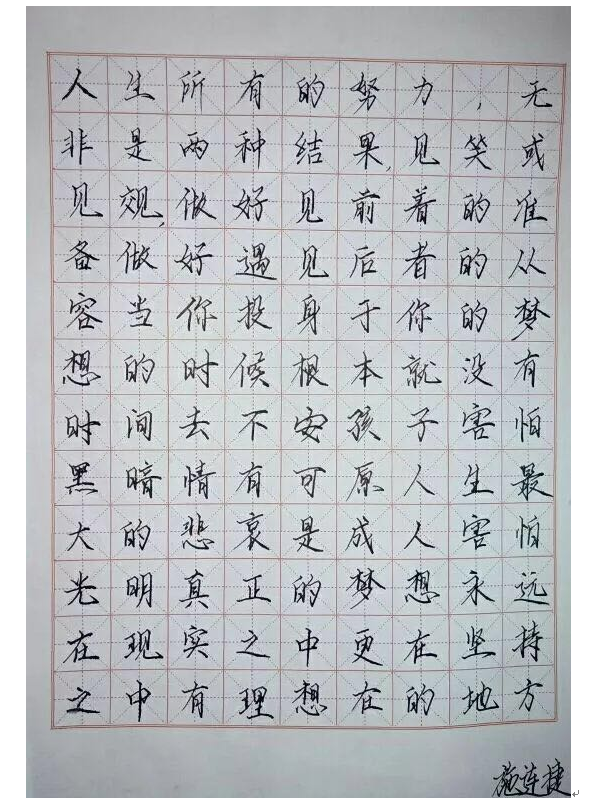 人生所有的努力，无
非是两种结果,见笑或
见觌,做好见前着的准
备做好遇见后者的从
容当你投身于你的梦
想的时候根本就没有
时间去不安孩子害怕
黑暗情有可原人生最
大的悲哀是成人害怕
光明真正的梦想永远
在现实之中更在坚持
之中有理想在的地方
施连捷